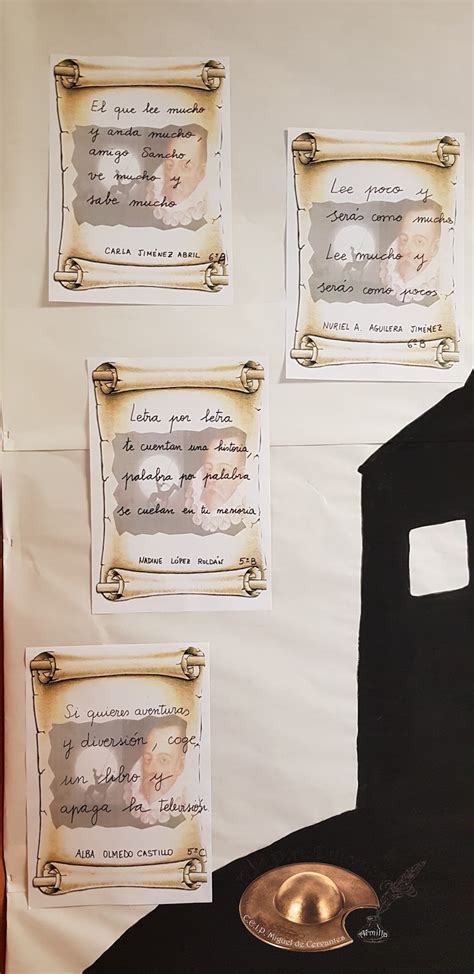 El que lee mucho
y anda mucho,
amigo Sancho,
ve mucho y
sabe mucho
CARLA JIMÉNEZ ABRIL 6ºB
Lee poco y
serás como muchos
Lee mucho y
serás como pocos
NURIEL A. AGUILERA JIMÉNEZ
6º B
Letra por letra
te cuentan una historia
palabra por palabra
se cuelan en tu memoria
NADINE LÓPEZ ROLDÁN 5ºB
Si quieres aventuras
y diversión, coge
un libro y
apaga la televisión
ALBA OLMEDO CASTILLO 5ºC
C.e.i.p. Miguel de Cervantes
Armilla